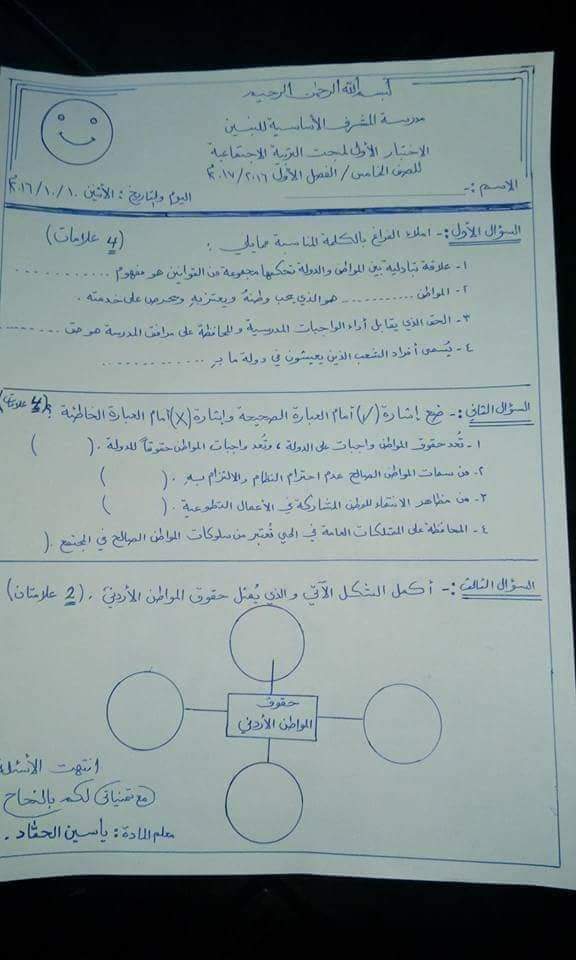 بسم الله الرحمن الرحيم
مدرسة المشرف الأساسية للبنين
الاختبار الأول لمبحث التربية الاجتماعية
للصف الخامس / الفصل الأول ٢٠١٦/٢٠١٧م
الاسم :- اليوم والتاريخ : الأثنين ١٠/١٠/٢٠١٦م
السؤال الأول :- املأ الفراغ بالكلمة المناسبة مما يلي : (4 علامات)
١- علاقة تبادلية بين المواطن والدولة تحكمها مجموعة من القوانين هو مفهوم ............
٢- المواطن ............ هو الذي يحب وطنه ويعتز به ويحرص على خدمته .
٣- الحق الذي يقابل أداء الواجبات المدرسية والمحافظة على مرافق المدرسة هو حق ............
٤- يُسمى أفراد الشعب الذين يعيشون في دولة ما بـ ............
السؤال الثاني :- ضع إشارة (√) أمام العبارة الصحيحة وإشارة (X) أمام العبارة الخاطئة : (4 علامات)
١- تُعد حقوق المواطن واجبات على الدولة ، وتُعد واجبات المواطن حقوقاً للدولة . ( )
٢- من سمات المواطن الصالح عدم احترام النظام والالتزام به . ( )
٣- من مظاهر الانتماء للوطن المشاركة في الأعمال التطوعية . ( )
٤- المحافظة على الممتلكات العامة في الحي تُعتبر من سلوكات المواطن الصالح في المجتمع . (
السؤال الثالث :- أكمل الشكل الآتي والذي يُمثل حقوق المواطن الأردني . (2 علامتان)
حقوق
المواطن الأردني
انتهت الأسئلة
مع تمنياتي لكم بالنجاح
معلم المادة : ياسين الحقاد .